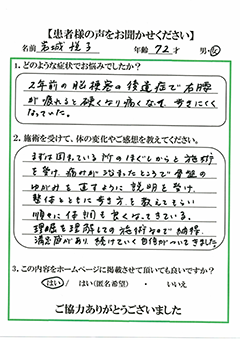 【患者様の声をお聞かせください】
名前 岩城 悦子 年齢 72 才 男・女
1. どのような症状でお悩みでしたか？
2年前の脳梗塞の後遺症で右膝
が疲れると硬くなり痛くなって歩きにくく
なっていた。
2. 施術を受けて、体の変化やご感想を教えてください。
まずは困っている所のほぐしからと施術
を受け、痛みが治まったところで骨盤の
ゆがみを直すように説明を受け、
整体とともに歩き方を教えてもらい
順々に体調も良くなってきている。
理屈を理解しての施術なので納得、
満足感があり、続けていく自信がついてきました。
3. この内容をホームページに掲載させて頂いても良いですか？
はい / はい(匿名希望) ・ いいえ
ご協力ありがとうございました